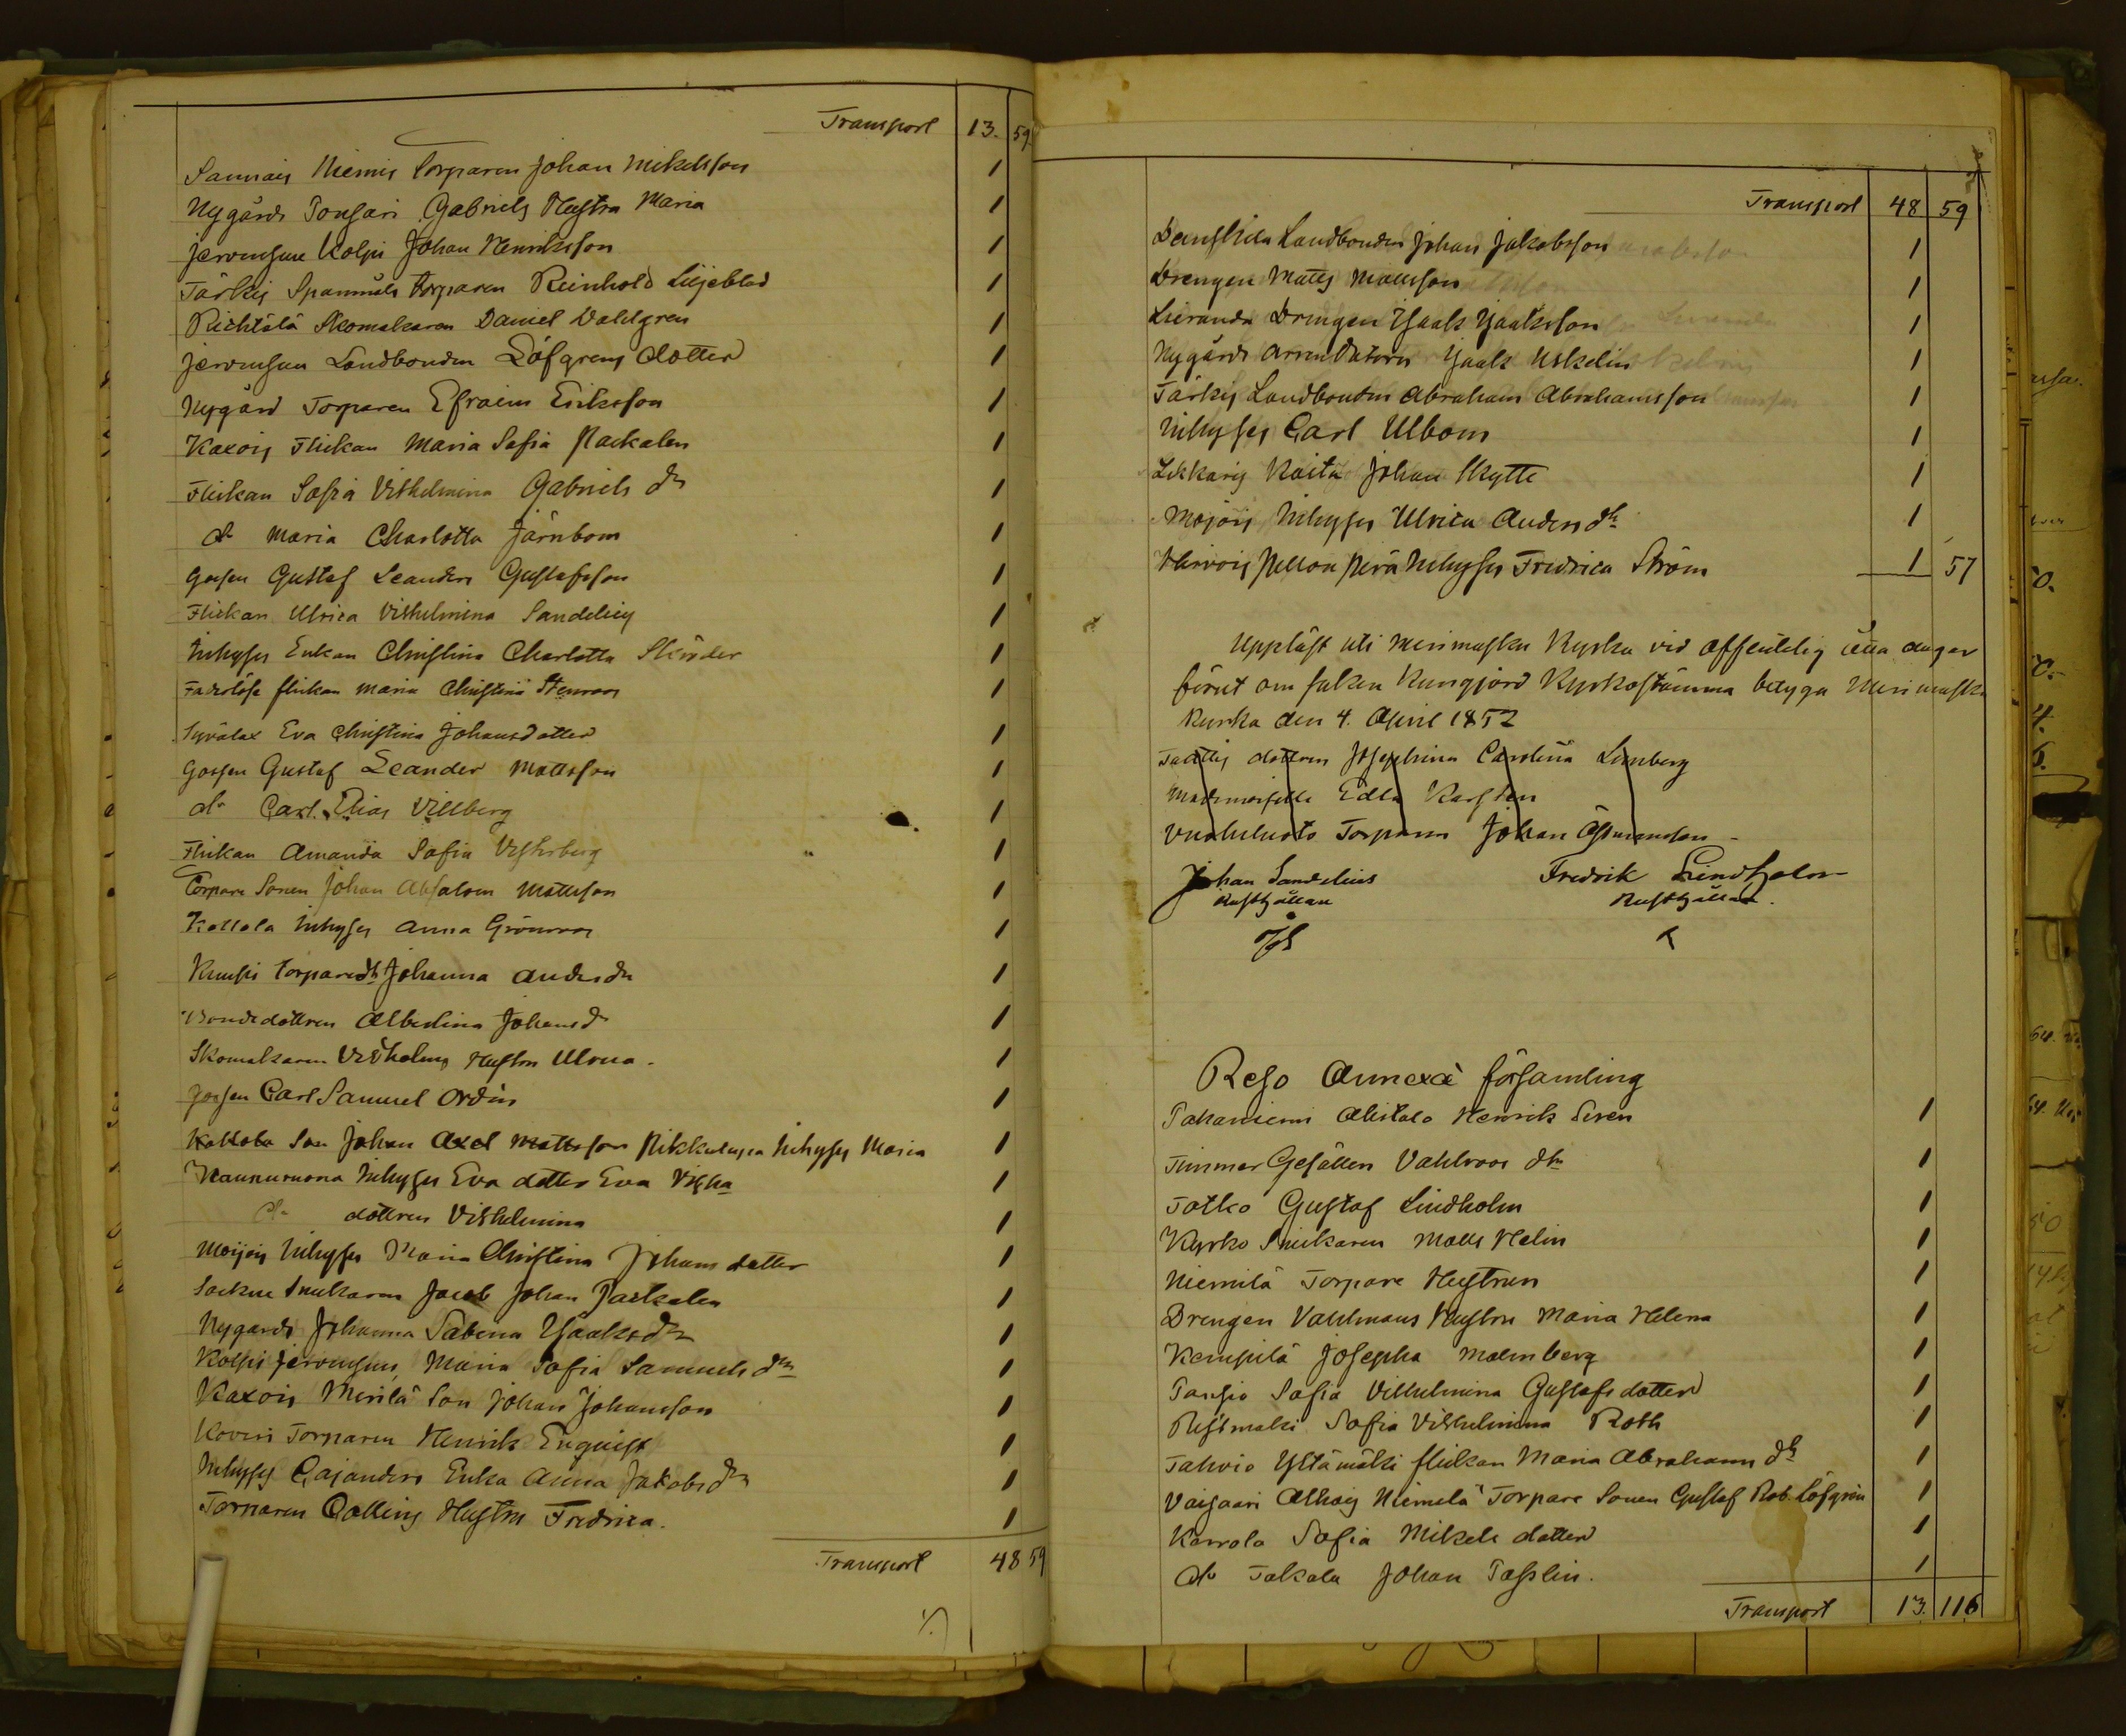 Transport 13. 59.
Sannais Niemis Torparen Johan Mikelsson 1
Nygårds Gabriels Hustru Maria 1
Jervensuu Kolpi Johan Henriksson 1
Tärkis Torparen Reinhold Liljeblad 1
Richtälä Skomakaren Daniel Dahlgren 1
Jervensuu Landbonden Löfgrens dotter 1
Nygård Torparen Efraim Eriksson 1
Kaxois Flickan Maria Sofia 1
Flickan Sofia Vilhelmina Gabriels dr 1
do Maria Charlotta Järnbom 1
Gossen Gustaf Leander Gustafsson 1
Flickan Ulrica Vilhelmina 1
Inhyses Enkan Christina Charlotta 1
Faderlösa flickan Maria Christina Stenroos 1
Syvälax Eva Christina Johansdotter 1
Gossen Gustaf Leander Mattsson 1
do Carl Elias Villberg 1
Flickan Amanda Sofia 1
Torpare Sonen Johan Absalom Mattsson 1
Kallela Inhyses Anna Grönroos 1
Kuusis torpared Johanna Anders dr 1
Bondedottren Albertina Johans d 1
Skomakaren Hustru Ulrica. 1
Gossen Carl Samuel Ordin 1
Kallela Son Johan Axel Mattsson Inhyses Maria 1
Inhyses Eva dotter Eva 1
do dottren Vilhelmina 1
Moijois Inhyses Maria Christina Johans dotter 1
Snickaren Jacob Johan 1
Nygårds Johanna Sabina Isaaks dr 1
Kolpis Jervensuu Maria Sofia Samuels dr 1
Kaxois Merilä Son Johan Johansson 1
Torparen Henrik Enqvist 1
Inhyses Cajanders Enka Anna Jakobs dr 1
Torparen Collins Hustru Fredrica. 1
Transport 48 59
Transport 48 59
Danskila Landbonden Johan Jakobsson 1
Drengen Matts Mattsson 1
Lieranda Drengen Isaak Isaaksson 1
Nygårds Arrendatorn Isaak Uskelin 1
Tärkis Landbonden Abraham Abrahamsson 1
Inhyses Carl Ulbom 1
Lekkaris Johan Skytte 1
Mojois Inhyses Ulrica Anders dr 1
Inhyses Fredrica Ström 1 57
Uppläst uti Merimasku Kyrka vid offentelig åtta dagar
förut om saken Kungjord Kyrkostämma betyga Merimasku
Kyrka den 4. April 1852
dottren Josephina Carolina Lemberg
Mademoiselle Edla Karsten
Torparen Johan
Johan Sandelius Fredrik Lindholm
Rusthållare Rusthållare.
Reso Annexa församling
Pakaniemi Alistalo Henrik Seren 1
Timmer Gesällen Vahlroos dtr 1
Tatko Gustaf Lindholm 1
Kyrko Snickaren Matts Helin 1
Niemilä Torpare Hustrun 1
Drengen Vahlmans Hustru Maria Helena 1
Kempilä Josepha Malmberg 1
Pansio Sofia Vilhelmina Gustafs dotter 1
Ristimäki Sofia Vilhelmina Roth 1
Tahvio Ylitämäki flickan Maria Abrahams dr 1
Vaisaari Alhais Niemelä Torpare Sonen Gustaf Rob. Löfgrén 1
Karrola Sofia Mikels dotter 1
do Takala Johan Tasslin. 1
Transport 13. 116